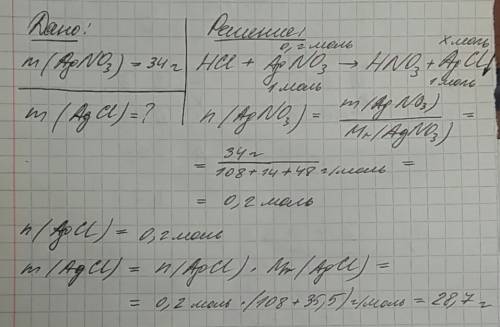 Дано:
m(AgNO₃) = 34 г
m(AgCl) = ?
Решение:
0,2 моль x моль
HCl + AgNO₃ → HNO₃ + AgCl↓
1 моль 1 моль
n(AgNO₃) = m(AgNO₃) / Mr(AgNO₃) =
= 34 г / 108+14+48 г/моль =
= 0,2 моль
n(AgCl) = 0,2 моль
m(AgCl) = n(AgCl) · Mr(AgCl) =
= 0,2 моль · (108 + 35,5) г/моль = 28,7 г